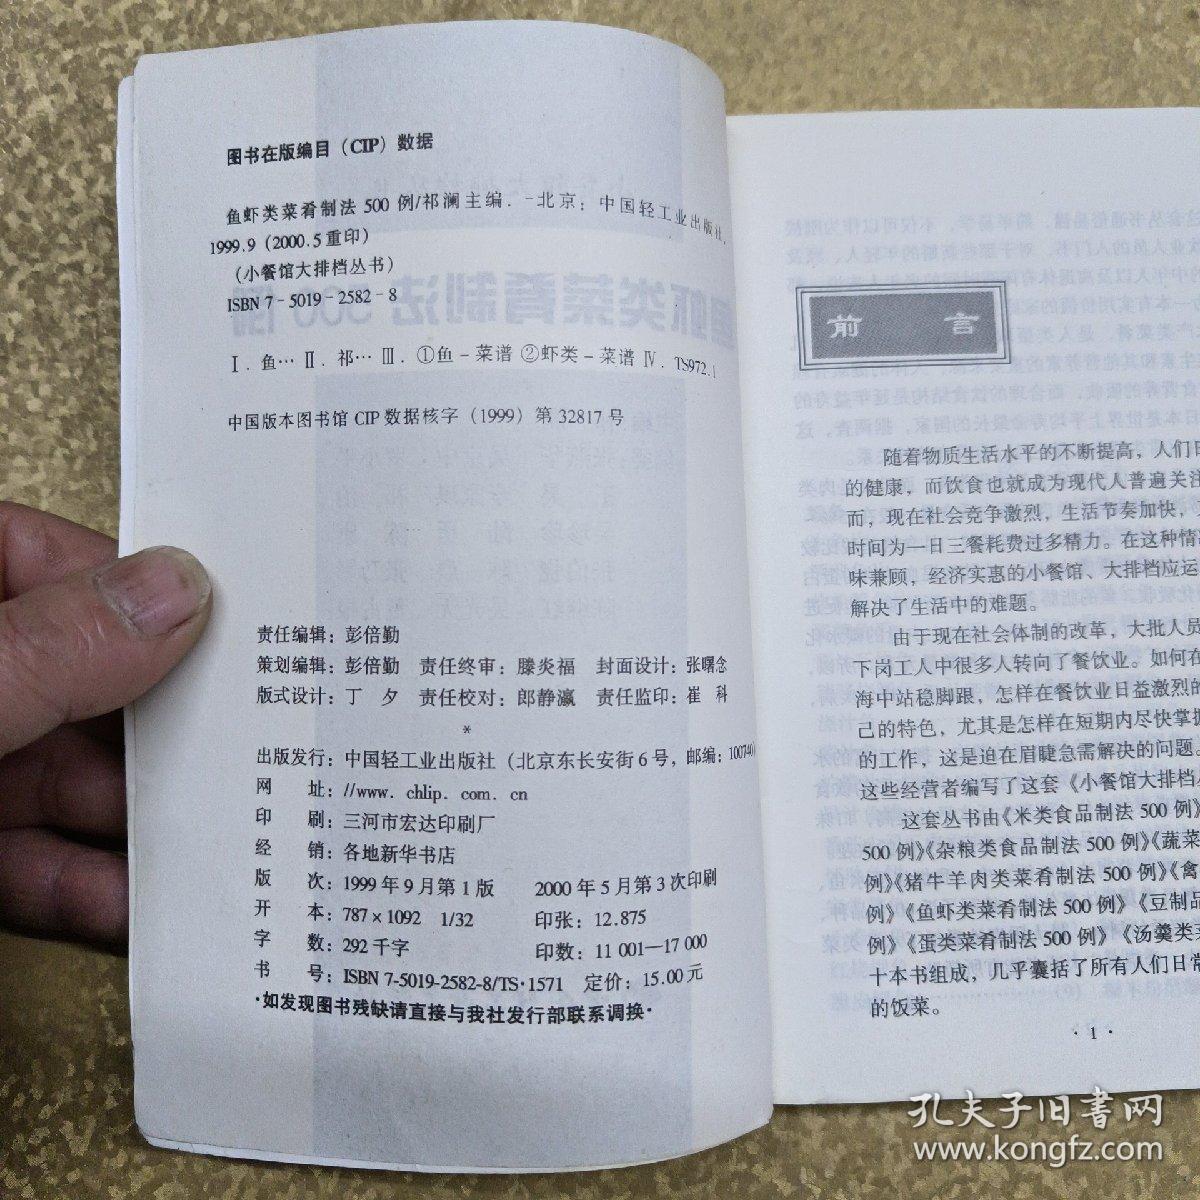 图书在版编目（CIP）数据
鱼虾类菜肴制法 500 例/祁澜主编．－北京：中国轻工业出版社，
1999.9（2000.5重印）
（小餐馆大排档丛书）
ISBN 7－5019－2582－8
Ⅰ．鱼… Ⅱ．祁… Ⅲ．①鱼－菜谱 ②虾类－菜谱 Ⅳ．TS972.1
中国版本图书馆 CIP 数据核字（1999）第 32817 号
责任编辑：彭倍勤
策划编辑：彭倍勤 责任终审：滕炎福 封面设计：张曙念
版式设计：丁 夕 责任校对：郎静瀛 责任监印：崔 科
*
出版发行：中国轻工业出版社（北京东长安街6号，邮编：100740
网 址：//www．chlip．com．cn
印 刷：三河市宏达印刷厂
经 销：各地新华书店
版 次：1999年9月第1版 2000年5月第3次印刷
开 本：787×1092 1/32 印张：12.875
字 数：292千字 印数：11 001—17 000
书 号：ISBN 7-5019-2582-8/TS·1571 定价：15.00元
·如发现图书残缺请直接与我社发行部联系调换·
前 言
随着物质生活水平的不断提高，人们日
的健康，而饮食也就成为现代人普遍关注
而，现在社会竞争激烈，生活节奏加快，
时间为一日三餐耗费过多精力。在这种情
味兼顾，经济实惠的小餐馆、大排档应运
解决了生活中的难题。
由于现在社会体制的改革，大批人员
下岗工人中很多人转向了餐饮业。如何在
海中站稳脚跟，怎样在餐饮业日益激烈的
己的特色，尤其是怎样在短期内尽快掌握
的工作，这是迫在眉睫急需解决的问题。
这些经营者编写了这套《小餐馆大排档
这套丛书由《米类食品制法 500 例》
500 例》《杂粮类食品制法 500 例》《蔬菜
例》《猪牛羊肉类菜肴制法 500 例》《禽
例》《鱼虾类菜肴制法 500 例》《豆制品
例》《蛋类菜肴制法 500 例》《汤羹类菜
十本书组成，几乎囊括了所有人们日常
的饭菜。
· 1 ·
孔夫子旧书网
www.kongfz.com